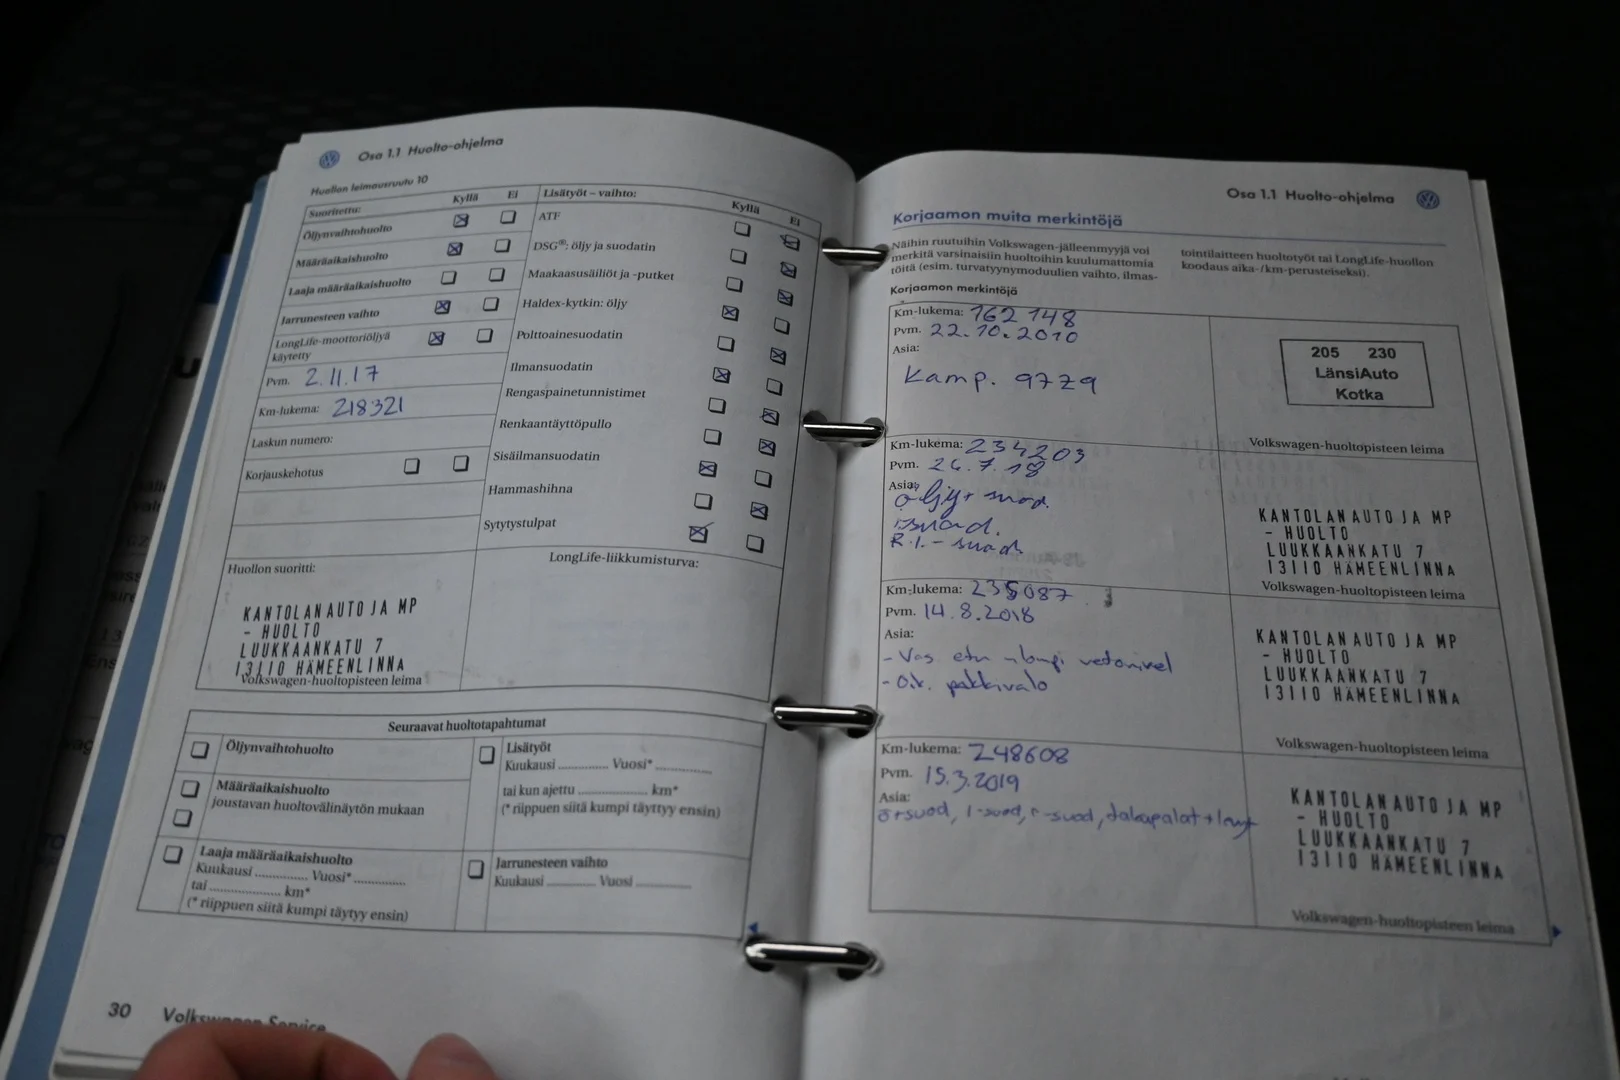 Osa 1.1 Huolto-ohjelma
Huollon leimausruutu 10
Suoritettu: Kyllä Ei
Öljynvaihtohuolto
Määräaikaishuolto
Laaja määräaikaishuolto
Jarrunesteen vaihto
LongLife-moottoriöljyä
käytetty
Pvm. 2.11.17
Km-lukema: 218321
Laskun numero:
Korjauskehotus
Huollon suoritti:
KANTOLAN AUTO JA MP
- HUOLTO
LUUKKAANKATU 7
13110 HÄMEENLINNA
Volkswagen-huoltopisteen leima
Lisätyöt – vaihto: Kyllä Ei
ATF
DSG®: öljy ja suodatin
Maakaasusäiliöt ja -putket
Haldex-kytkin: öljy
Polttoainesuodatin
Ilmansuodatin
Rengaspainetunnistimet
Renkaantäyttöpullo
Sisäilmansuodatin
Hammashihna
Sytytystulpat
LongLife-liikkumisturva:
Seuraavat huoltotapahtumat
Öljynvaihtohuolto
Määräaikaishuolto
joustavan huoltovälinäytön mukaan
Laaja määräaikaishuolto
Kuukausi ............ Vuosi* ............
tai ................ km*
(* riippuen siitä kumpi täytyy ensin)
Lisätyöt
Kuukausi ............ Vuosi* ............
tai kun ajettu ................ km*
(* riippuen siitä kumpi täyttyy ensin)
Jarrunesteen vaihto
Kuukausi ............ Vuosi ............
30 Volkswagen Service
Osa 1.1 Huolto-ohjelma
Korjaamon muita merkintöjä
Näihin ruutuihin Volkswagen-jälleenmyyjä voi
merkitä varsinaisiin huoltoihin kuulumattomia
töitä (esim. turvatyynymoduulien vaihto, ilmas-
tointilaitteen huoltotyöt tai LongLife-huollon
koodaus aika-/km-perusteiseksi).
Korjaamon merkintöjä
Km-lukema: 162 148
Pvm. 22.10.2010
Asia:
Kamp. 97Z9
205 230
LänsiAuto
Kotka
Volkswagen-huoltopisteen leima
Km-lukema: 234203
Pvm. 26.7.18
Asia:
öljy+ suod.
suod.
R.I.- suod.
KANTOLAN AUTO JA MP
- HUOLTO
LUUKKAANKATU 7
13110 HÄMEENLINNA
Volkswagen-huoltopisteen leima
Km-lukema: 235087
Pvm. 14.8.2018
Asia:
- Vas etu vetonivel
- O.k. pakkivalo
KANTOLAN AUTO JA MP
- HUOLTO
LUUKKAANKATU 7
13110 HÄMEENLINNA
Volkswagen-huoltopisteen leima
Km-lukema: 248608
Pvm. 15.3.2019
Asia:
ö+suod, i-suod, r-suod, takapalat+levyt
KANTOLAN AUTO JA MP
- HUOLTO
LUUKKAANKATU 7
13110 HÄMEENLINNA
Volkswagen-huoltopisteen leima